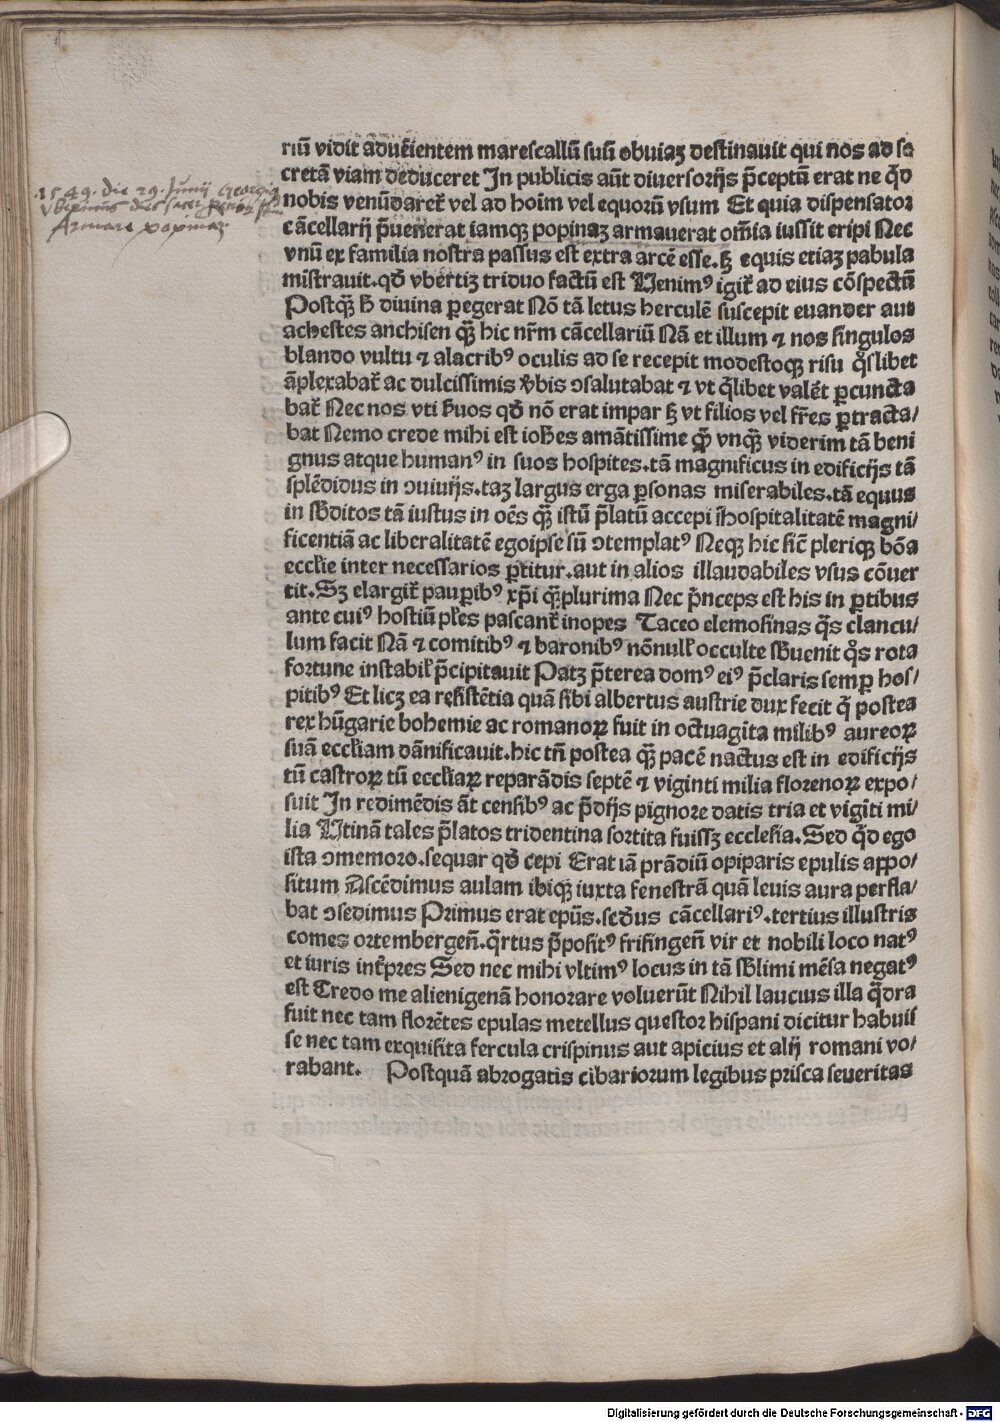 1549. die 29. Junij Georgius
Armare popinaz
riū vidit adue͛ientem marescallū suū obuiaz destinauit qui nos ad se
cretā viam deduceret In publicis aūt diuersorijs p̄ceptū erat ne q̄d
nobis venūdaret᷑ vel ad hoīm vel equorū vsum Et quia dispensator
cācellarij p̄uenerat iamqꝫ popinaꝫ armauerat om̄ia iussit eripi Nec
vnū ex familia nostra passus est extra arcē esse. hꝫ equis etiaꝫ pabula
mīstrauit. qd̄ vbertiꝫ triduo factū est Uenimꝰ igit᷑ ad eius cōspectū
Postqꝫ̄ h̄ diuina ꝑegerat Nō tā letus herculē suscepit euander aut
achestes anchisen qꝫ̄ hic nr̄m cācellariū Nā et illum ⁊ nos singulos
blando vultu ⁊ alacribꝰ oculis ad se recepit modestoqꝫ risu qͦslibet
āplexabat᷑ ac dulcissimis v̄bis ↄsalutabat ⁊ vt q̄libet valēt ꝑcuncta
bat᷑ Nec nos vti s̄uos qd̄ nō erat impar hꝫ vt filios vel fr̄es ꝑtracta/
bat Nemo crede mihi est ioh̄es amātissime quē vnqꝫ̄ viderim tā beni
gnus atque humanꝰ in suos hospites. tā magnificus in edificijs tā
splēdidus in ↄuiuijs. taꝫ largus erga ꝑsonas miserabiles. tā equus
in sb̄ditos tā iustus in oēs qꝫ̄ istū p̄latū accepi īhospitalitatē magni/
ficentiā ac liberalitatē egoipse sū ↄtemplatꝰ Neqꝫ hic sic̄ pleriqꝫ bōa
eccl̄ie inter necessarios ꝑtitur. aut in alios illaudabiles vsus cōuer
tit. Sꝫ elargit᷑ pauꝑibꝰ xp̄i qꝫ̄plurima Nec p̄nceps est his in ꝑtibus
ante cuiꝰ hostiū pl̄es pascant᷑ inopes Taceo elemosinas q̄s clancu/
lum facit Nā ⁊ comitibꝰ ⁊ baronibꝰ nōnull᷑ occulte sb̄uenit qͦs rota
fortune instabil᷑ p̄cipitauit Patꝫ p̄terea domꝰ eiꝰ p̄claris semꝑ hos/
pitibꝰ Et licꝫ ea resistētia quā sibi albertus austrie dux fecit q̄ postea
rex hūgarie bohemie ac romanoꝝ fuit in octuagīta milibꝰ aureoꝝ
suā eccl̄iam dānificauit. hic tn̄ postea qꝫ̄ pacē nactus est in edificijs
tū castroꝝ tū eccl̄iaꝝ reparādis septē ⁊ viginti milia florenoꝝ expo/
suit In redimēdis āt censibꝰ ac p̄dijs pignore datis tria et vigīti mi/
lia Utinā tales p̄latos tridentina sortita fuissꝫ ecclesia. Sed q̄d ego
ista ↄmemoro. sequar qd̄ cepi Erat iā prādiū opiparis epulis appo/
situm Ascēdimus aulam ibiqꝫ iuxta fenestrā quā leuis aura perfla/
bat ↄsedimus Primus erat ep̄us. secd̄us cācellariꝰ. tertius illustris
comes ortembergen̄. q̄rtus p̄positꝰ frisingen̄ vir et nobili loco natꝰ
et iuris int᷑pres Sed nec mihi vltimꝰ locus in tā sb̄limi mēsa negatꝰ
est Credo me alienigenā honorare voluerūt Nihil laucius illa q̄dra
fuit nec tam florētes epulas metellus questor hispani dicitur habuis
se nec tam exquisita fercula crispinus aut apicius et alij romani vo/
rabant. Postquā abrogatis cibariorum legibus prisca seueritas
Digitalisierung gefördert durch die Deutsche Forschungsgemeinschaft - DFG